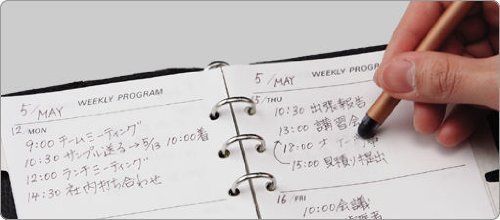 5/MAY
WEEKLY PROGRAM
12/MON
9:00 チームミーティング
10:30 サンプル送る→5/13 10:00着
12:00 ランチミーティング
14:30 社内打ち合わせ
5/MAY
WEEKLY PROGRAM
15/THU
10:30 出張報告
13:00 講習会
18:00
15:00 見積り提出
16/FRI
10:00 会議